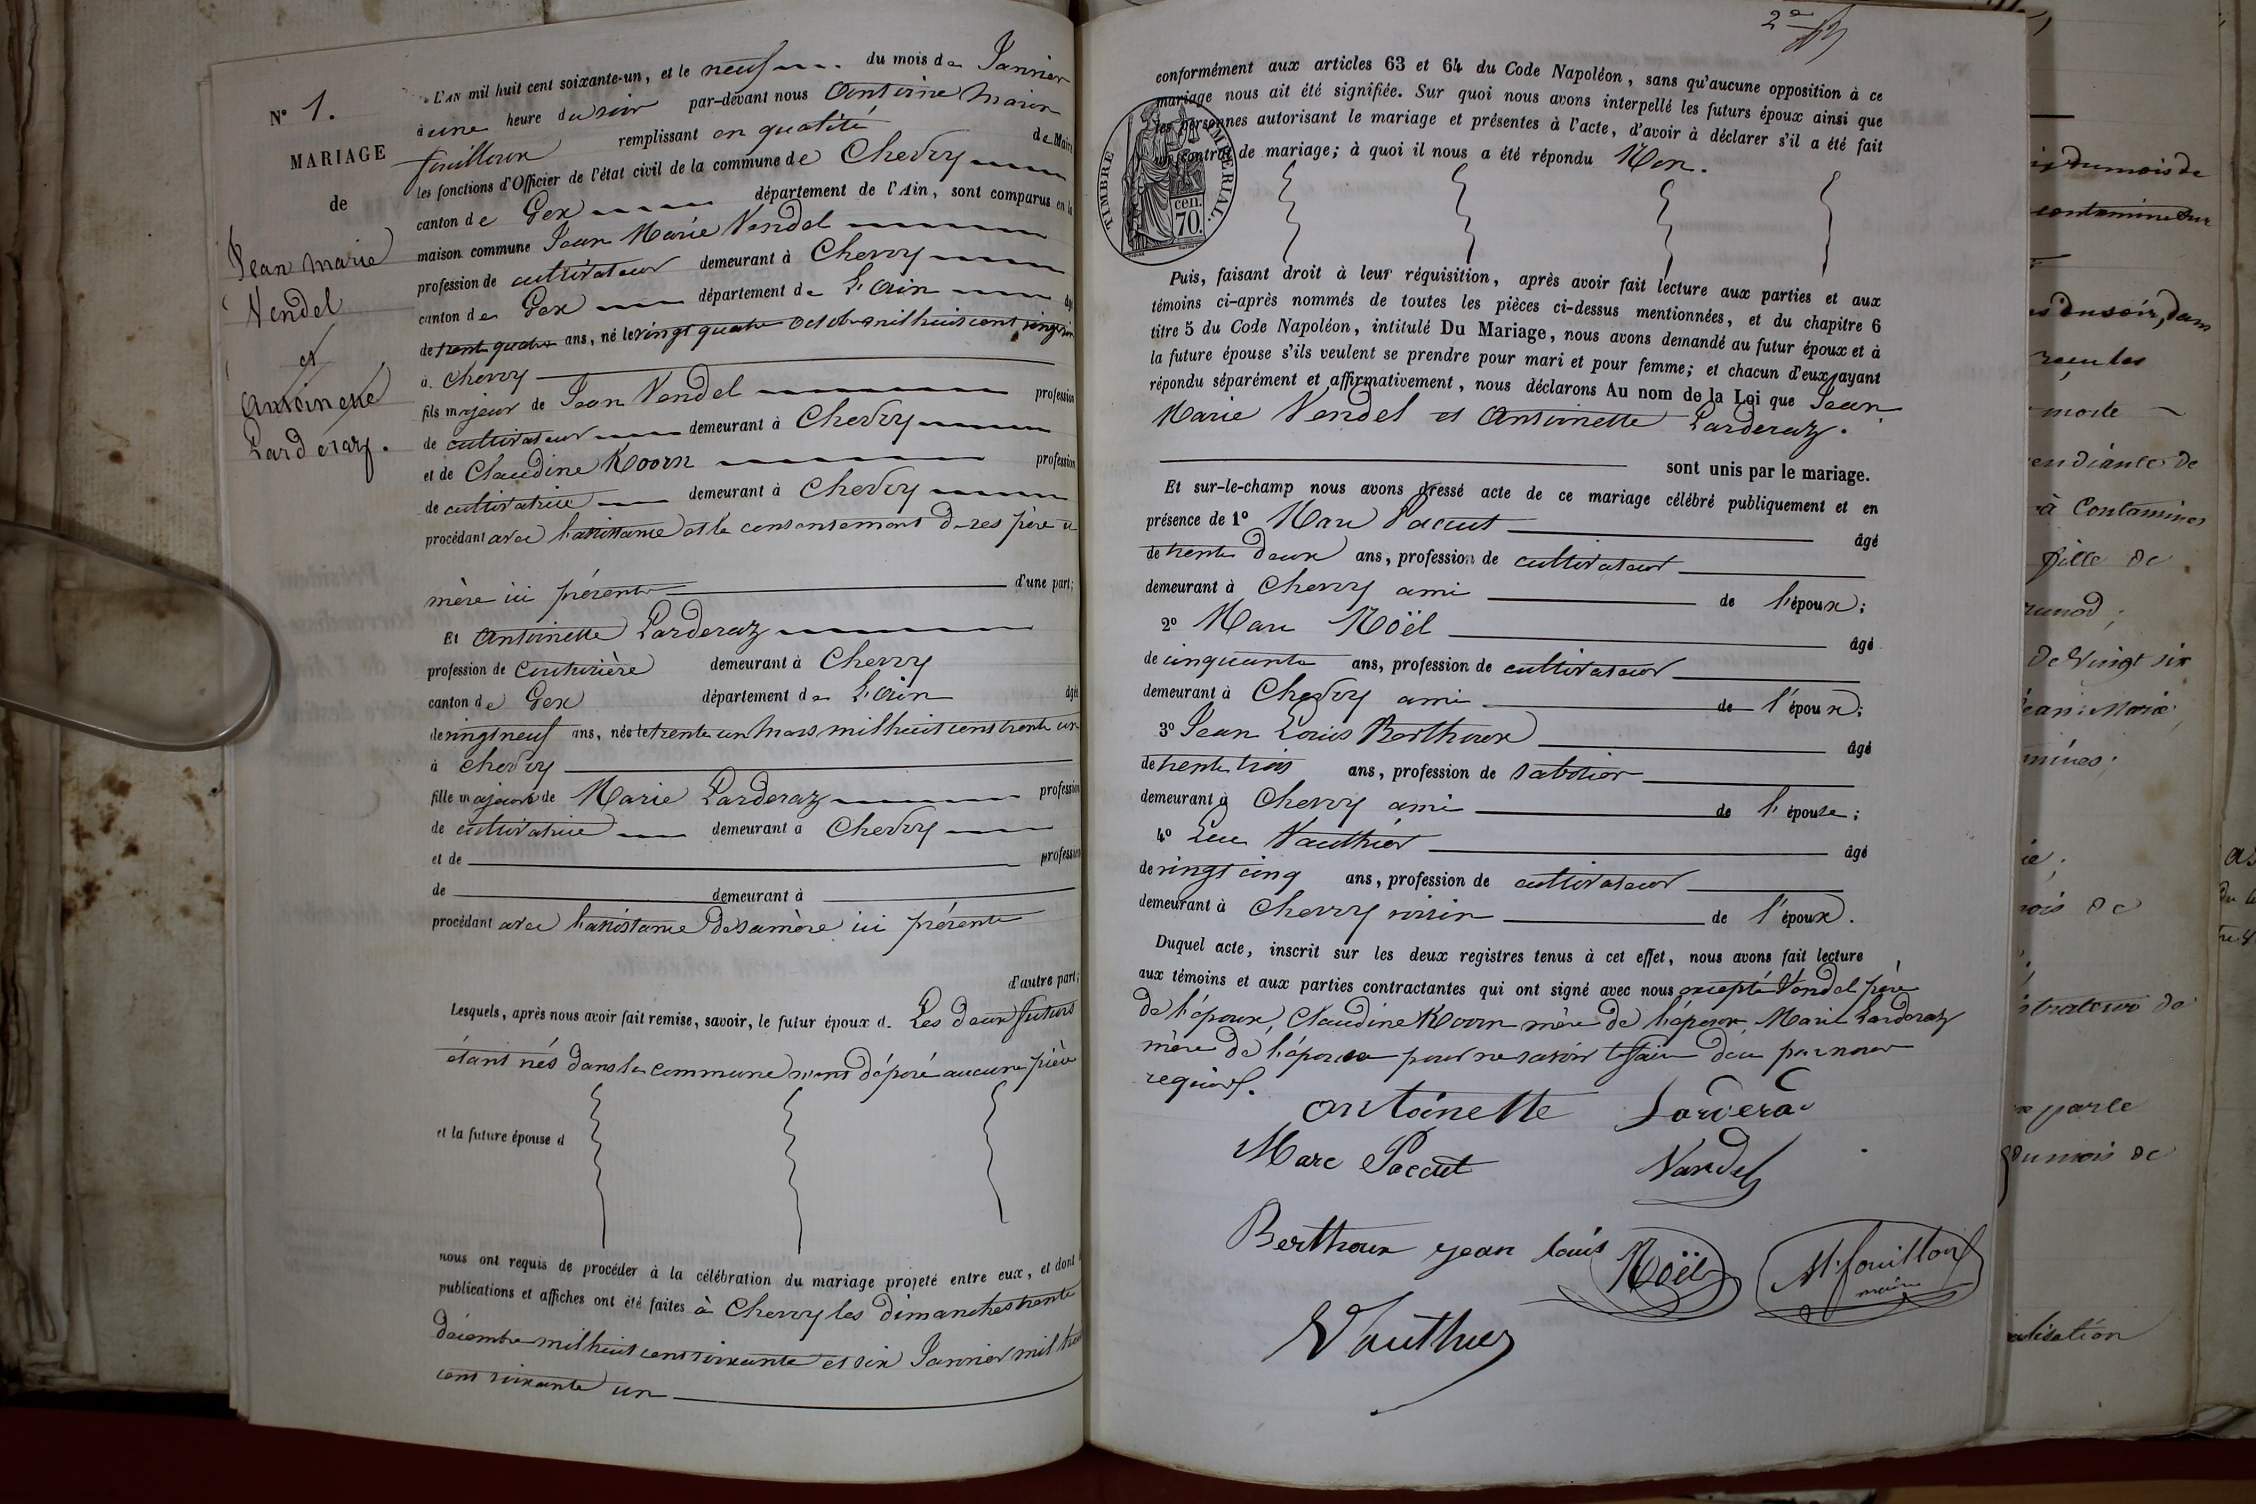 N° 1.
MARIAGE
de
Jean Marie
Vendel
et
Antoinette
Larderaz.
L'AN mil huit cent soixante-un, et le neuf du mois de Janvier
à une heure du soir par-devant nous Antoine Marin
fouilloux remplissant en qualité de Maire
les fonctions d'Officier de l'état civil de la commune de Chevry
canton de Gex département de l'Ain, sont comparus en la
maison commune Jean Marie Vendel
profession de cultivateur demeurant à Chevry
canton de Gex département de L'Ain âgé
de trente quatre ans, né le vingt quatre octobre mil huit cent vingt six
à Chevry
fils majeur de Jean Vendel profession
de cultivateur demeurant à Chevry
et de Claudine Koorn profession
de cultivatrice demeurant à Chevry
procédant avec l'assistance et le consentement de ses père et
mère ici présents d'une part;
Et Antoinette Larderaz
profession de couturière demeurant à Chevry
canton de Gex département de L'Ain âgée
de vingt neuf ans, née le trente un Mars mil huit cent trente un
à Chevry
fille majeure de Marie Larderaz profession
de cultivatrice demeurant à Chevry
et de profession
de demeurant à
procédant avec l'assistance de sa mère ici présente
d'autre part;
Lesquels, après nous avoir fait remise, savoir, le futur époux d. Les deux futurs
étant nés dans la commune n'ont déposé aucune pièce
et la future épouse d
nous ont requis de procéder à la célébration du mariage projeté entre eux, et dont
publications et affiches ont été faites à Chevry les dimanches trente
décembre mil huit cent soixante et six Janvier mil huit
cent soixante un
2e
conformément aux articles 63 et 64 du Code Napoléon, sans qu'aucune opposition à ce
mariage nous ait été signifiée. Sur quoi nous avons interpellé les futurs époux ainsi que
les personnes autorisant le mariage et présentes à l'acte, d'avoir à déclarer s'il a été fait
un contrat de mariage; à quoi il nous a été répondu Non.
TIMBRE IMPÉRIAL.
cen.
70.
Puis, faisant droit à leur réquisition, après avoir fait lecture aux parties et aux
témoins ci-après nommés de toutes les pièces ci-dessus mentionnées, et du chapitre 6
titre 5 du Code Napoléon, intitulé Du Mariage, nous avons demandé au futur époux et à
la future épouse s'ils veulent se prendre pour mari et pour femme; et chacun d'eux ayant
répondu séparément et affirmativement, nous déclarons Au nom de la Loi que Jean
Marie Vendel et Antoinette Larderaz.
sont unis par le mariage.
Et sur-le-champ nous avons dressé acte de ce mariage célébré publiquement et en
présence de 1° Marc Paccut âgé
de trente deux ans, profession de cultivateur
demeurant à Chevry ami de l'époux;
2° Marc Noël âgé
de cinquante ans, profession de cultivateur
demeurant à Chevry ami de l'époux;
3° Jean Louis Berthoux âgé
de trente trois ans, profession de sabotier
demeurant à Chevry ami de l'épouse;
4° Luc Vauthier âgé
de vingt cinq ans, profession de cultivateur
demeurant à Chevry voisin de l'époux.
Duquel acte, inscrit sur les deux registres tenus à cet effet, nous avons fait lecture
aux témoins et aux parties contractantes qui ont signé avec nous excepté Vendel père
de l'époux, Claudine Koorn mère de l'époux, Marie Larderaz
mère de l'épouse pour ne savoir le faire de ce par nous
requis.
Antoinette Lardera
Marc Paccut Vandel
Berthoux jean louis Noël M. fouilloux
maire
Vauthier
du mois de
contamine sur
es du soir, dans
reçu les
morte
endiante de
à Contamines
fille de
de vingt six
Jean Marie
mines;
ie;
ois de
parle
du mois de
alisation